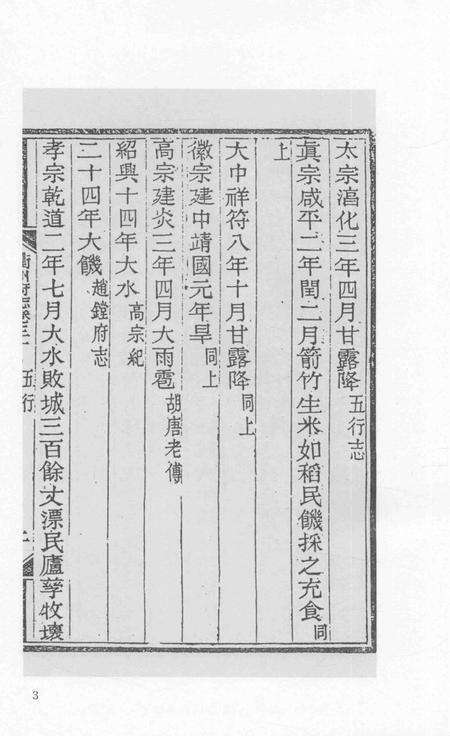 太宗淳化三年四月甘露降五行志
眞宗咸平二年閏二月箭竹生米如稻民饑採之充食同
上
大中祥符八年十月甘露降同上
徽宗建中靖國元年旱同上
高宗建炎三年四月大雨雹胡唐老傳
紹興十四年大水高宗紀
二十四年大饑趙鏜府志
孝宗乾道二年七月大水敗城三百餘丈漂民廬孳牧壞
五行
3